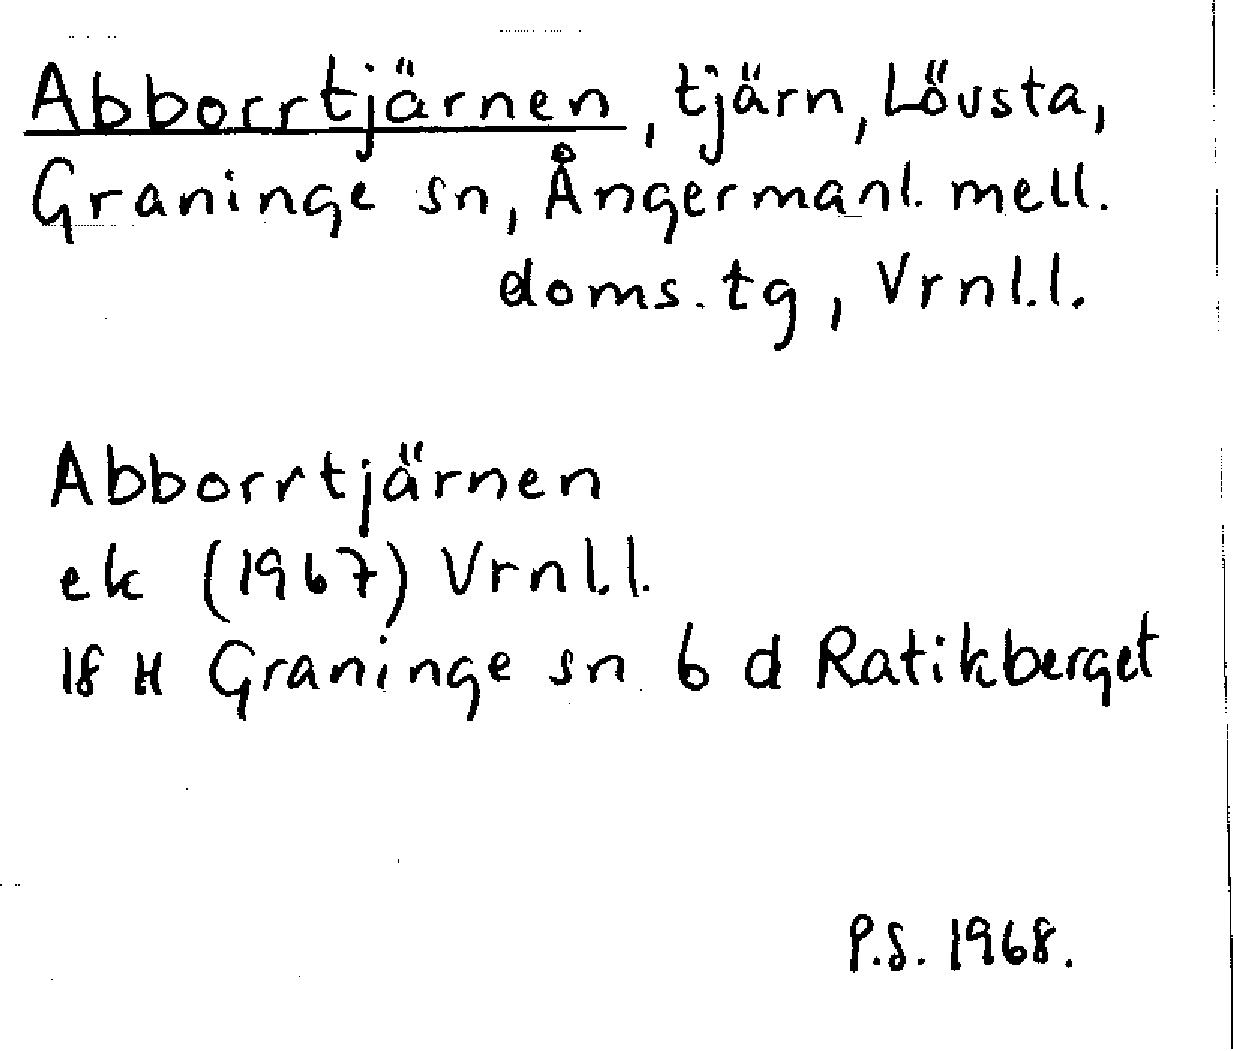 Abborrtjärnen, tjärn, Lövsta,
Graninge sn, Ångermanl. mell.
doms. tg, Vrnl.l.
Abborrtjärnen
ek (1967) Vrnl.l.
18 H Graninge sn 6 d Ratikberget
P.S. 1968.